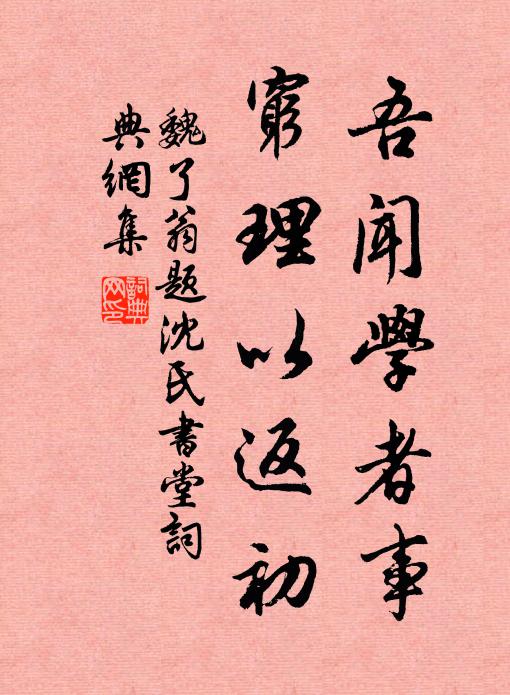 吾闻学者事
窮理以返初
魏了翁题沈氏書堂詞
典網集
詞典
网印